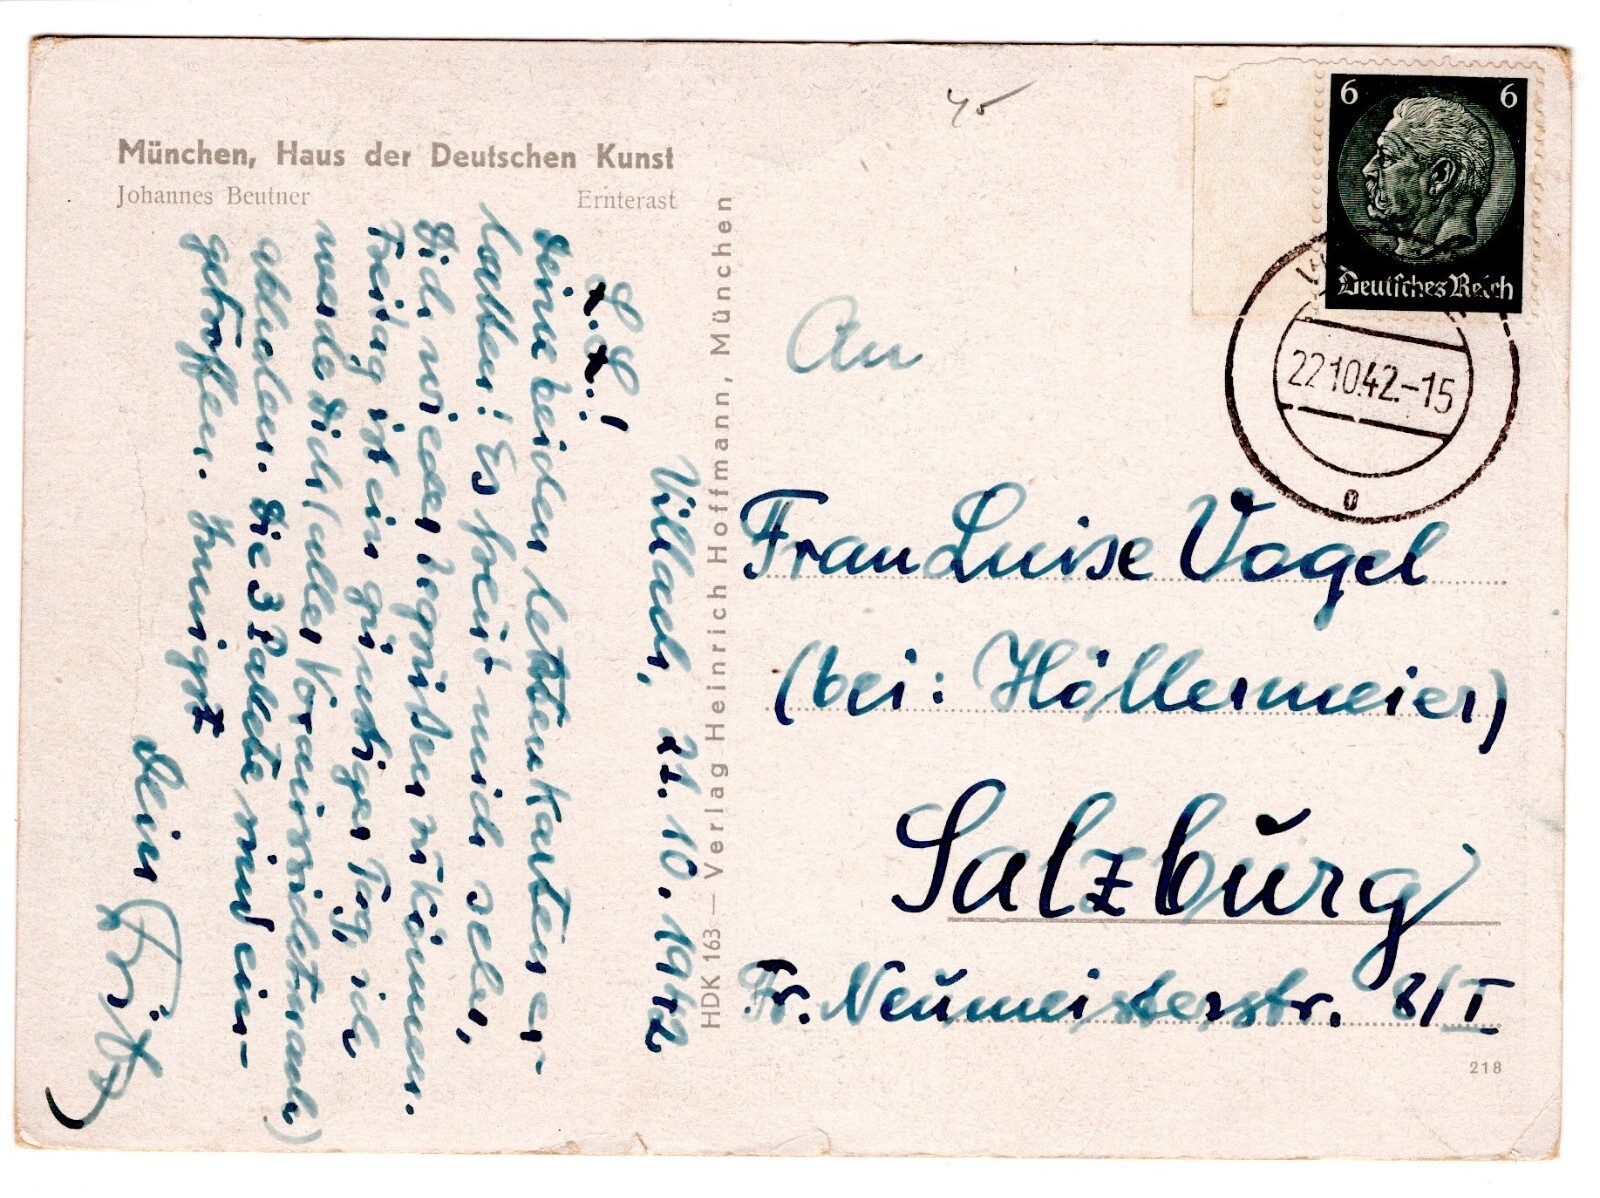 München, Haus der Deutschen Kunst
Johannes Beutner Ernterast
45
6 6
Deutsches Reich
22.10.42.-15
HDK 163 — Verlag Heinrich Hoffmann, München
Villach, 21. 10. 1942
L. L.!
Deine beiden letzten Karten er-
halten! Es freut mich sehr,
Dich wieder begrüßen zu können.
Freitag ist ein günstiger Tag, ich
werde Dich (aller Voraussicht nach)
abholen. Die 3 Pakete sind ein-
getroffen. Innigst
Dein Fritz
An
Frau Luise Vogel
(bei: Höllermeier)
Salzburg
Fr. Neumeisterstr. 2/I
218